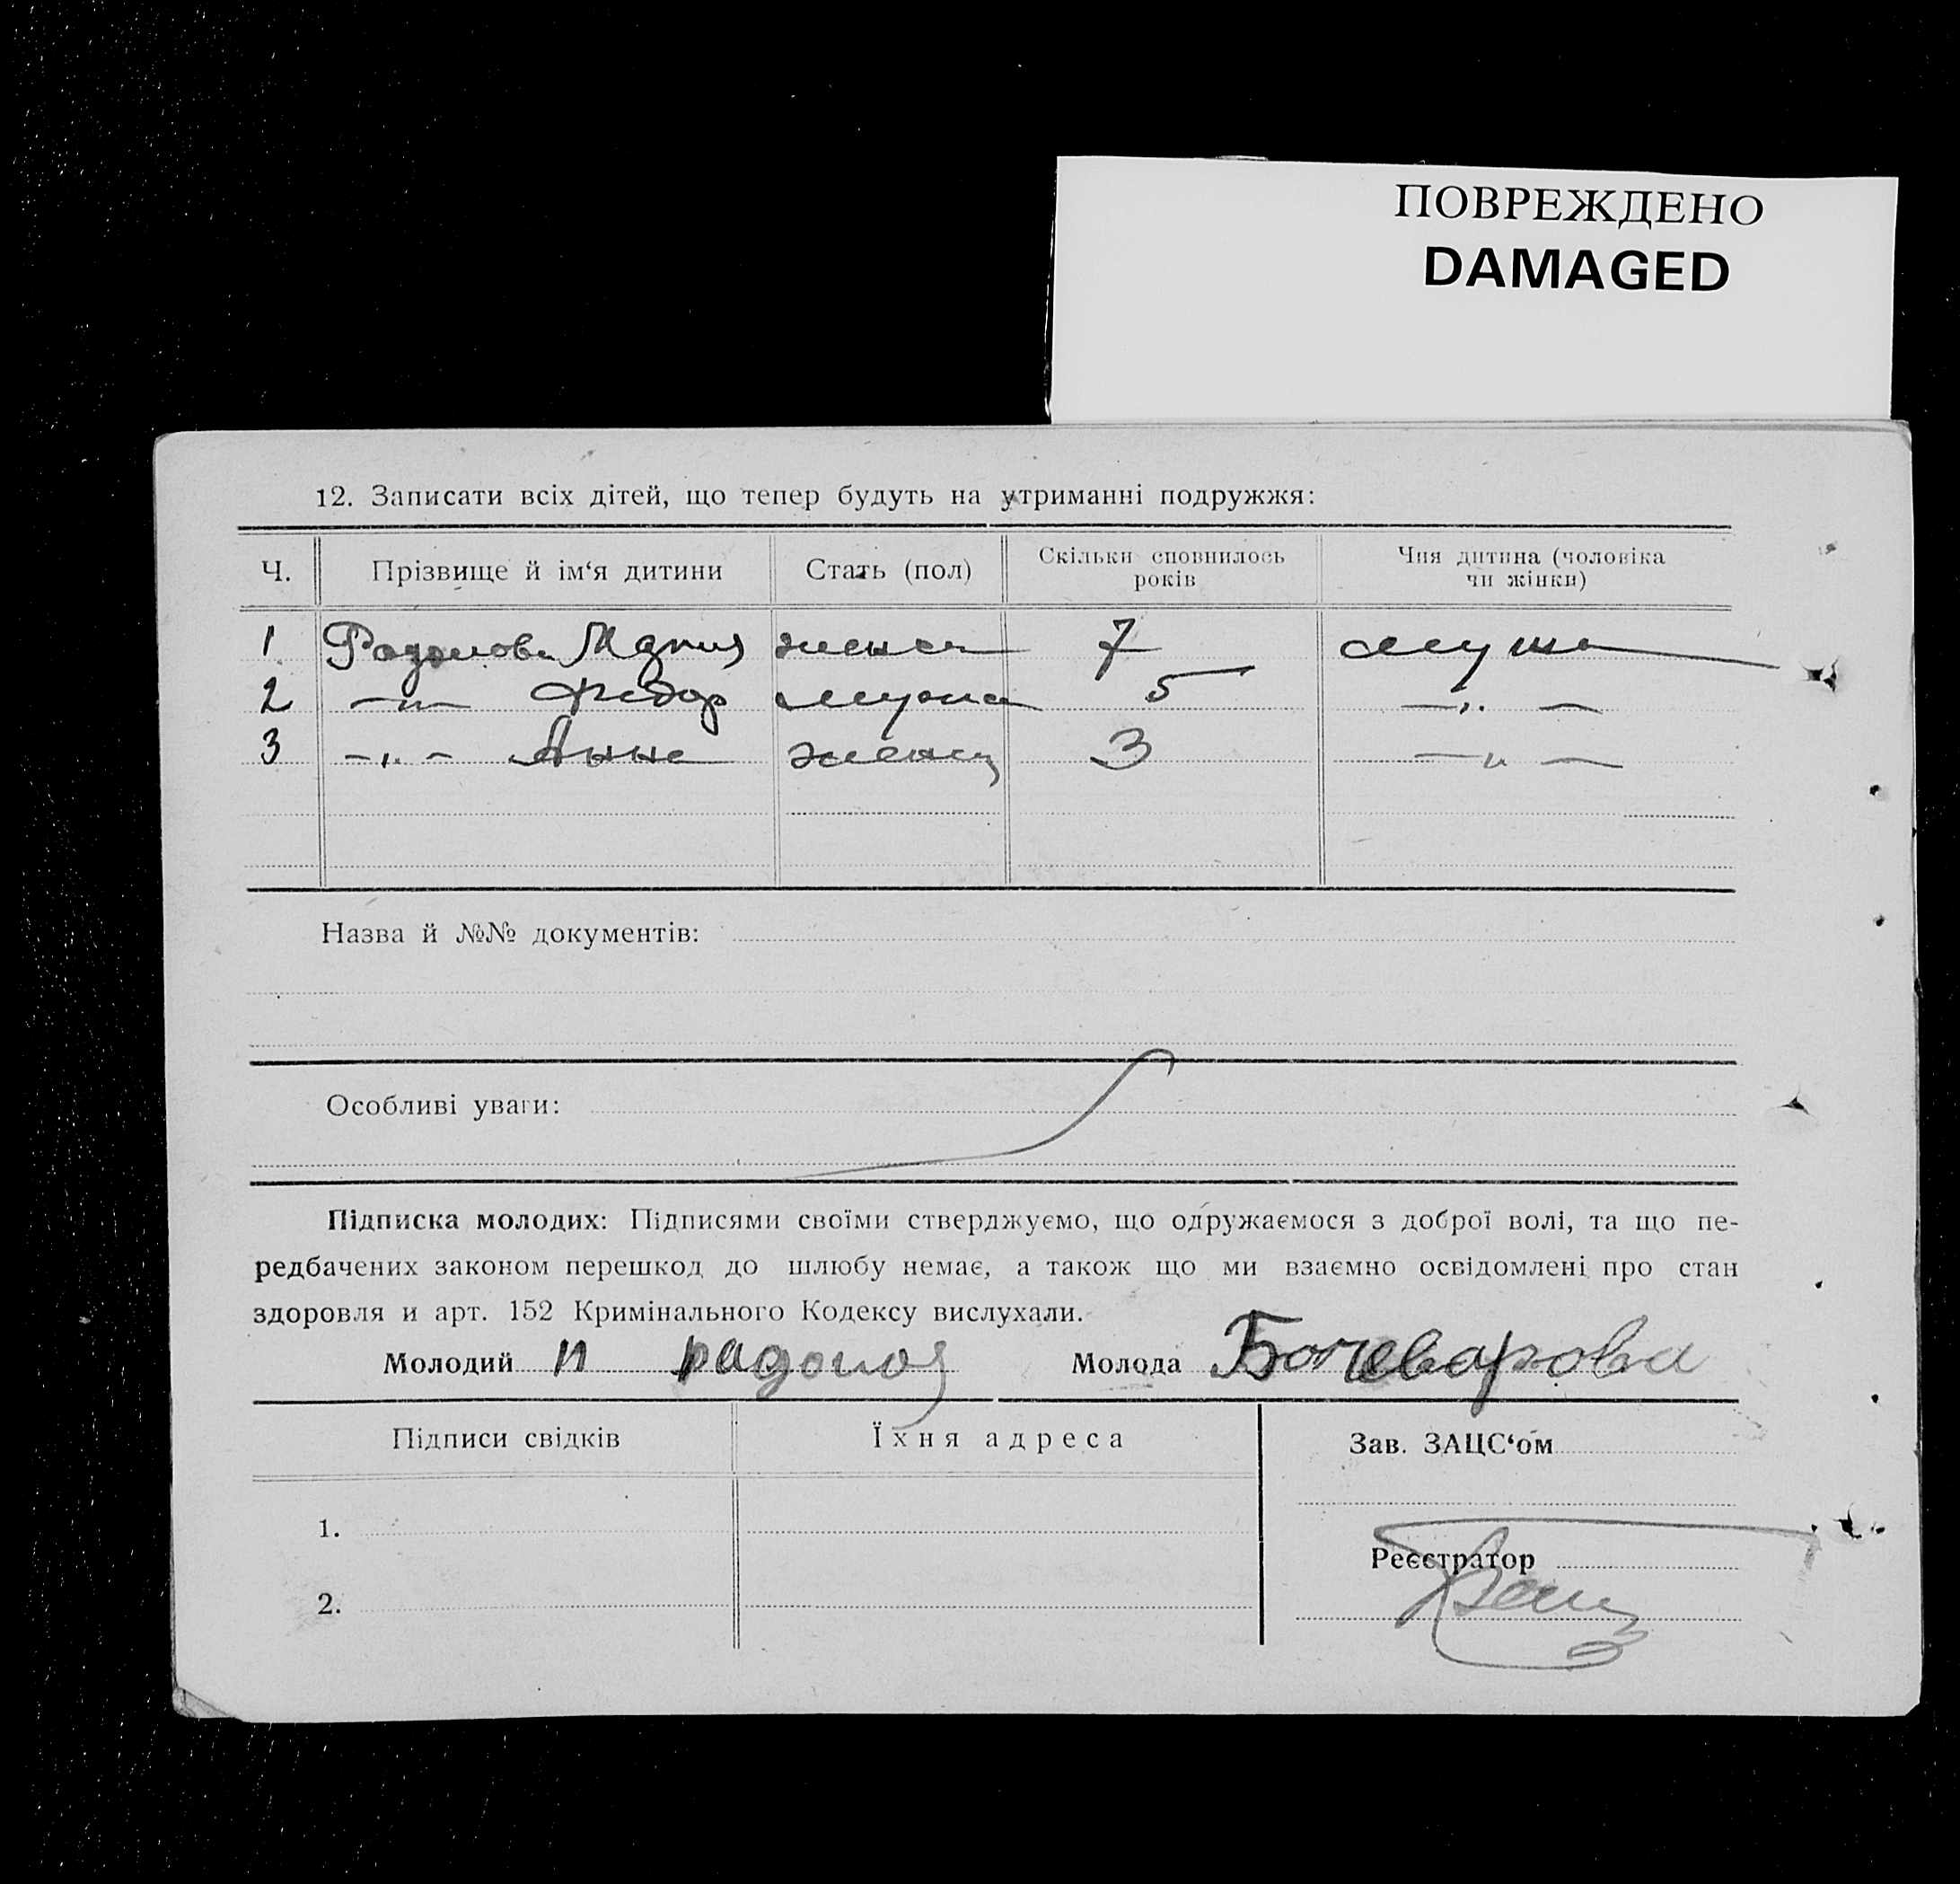 ПОВРЕЖДЕНО
DAMAGED
12. Записати всіх дітей, що тепер будуть на утриманні подружжя:
Ч. Прізвище й ім‘я дитини Стать (пол) Скільки сповнилось років Чия дитина (чоловіка чи жінки)
1 Мария женск 7 мужа
2 —„— Федор мужск 5 —„—
3 —„— Анна женск 3 —„—
Назва й №№ документів:
Особливі уваги:
Підписка молодих: Підписями своїми стверджуємо, що одружаємося з доброї волі, та що пе-
редбачених законом перешкод до шлюбу немає, а також що ми взаємно освідомлені про стан
здоровля и арт. 152 Кримінального Кодексу вислухали.
Молодий п Молода Бочеварова
Підписи свідків Їхня адреса Зав. ЗАЦС‘ом
1.
Реєстратор
2.